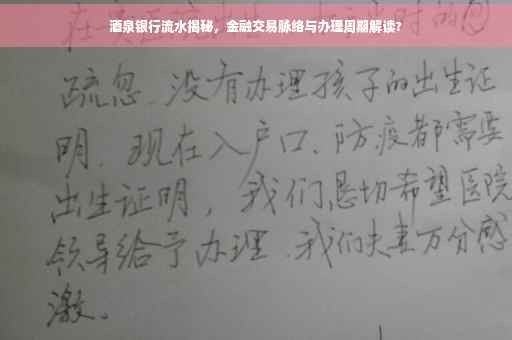 酒泉银行流水揭秘，金融交易脉络与办理周期解读?
疏忽、没有办理孩子的出生证
明、现在入户口、防疫都需要
出生证明，我们恳切希望医院
领导给予办理、我们夫妻万分感
激。